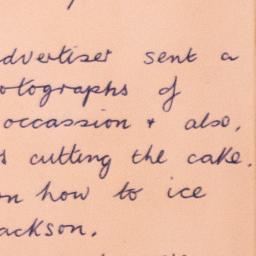 dvertiser sent a
otographs of
occassion + also,
s cutting the cake.
on how to ice
ackson.